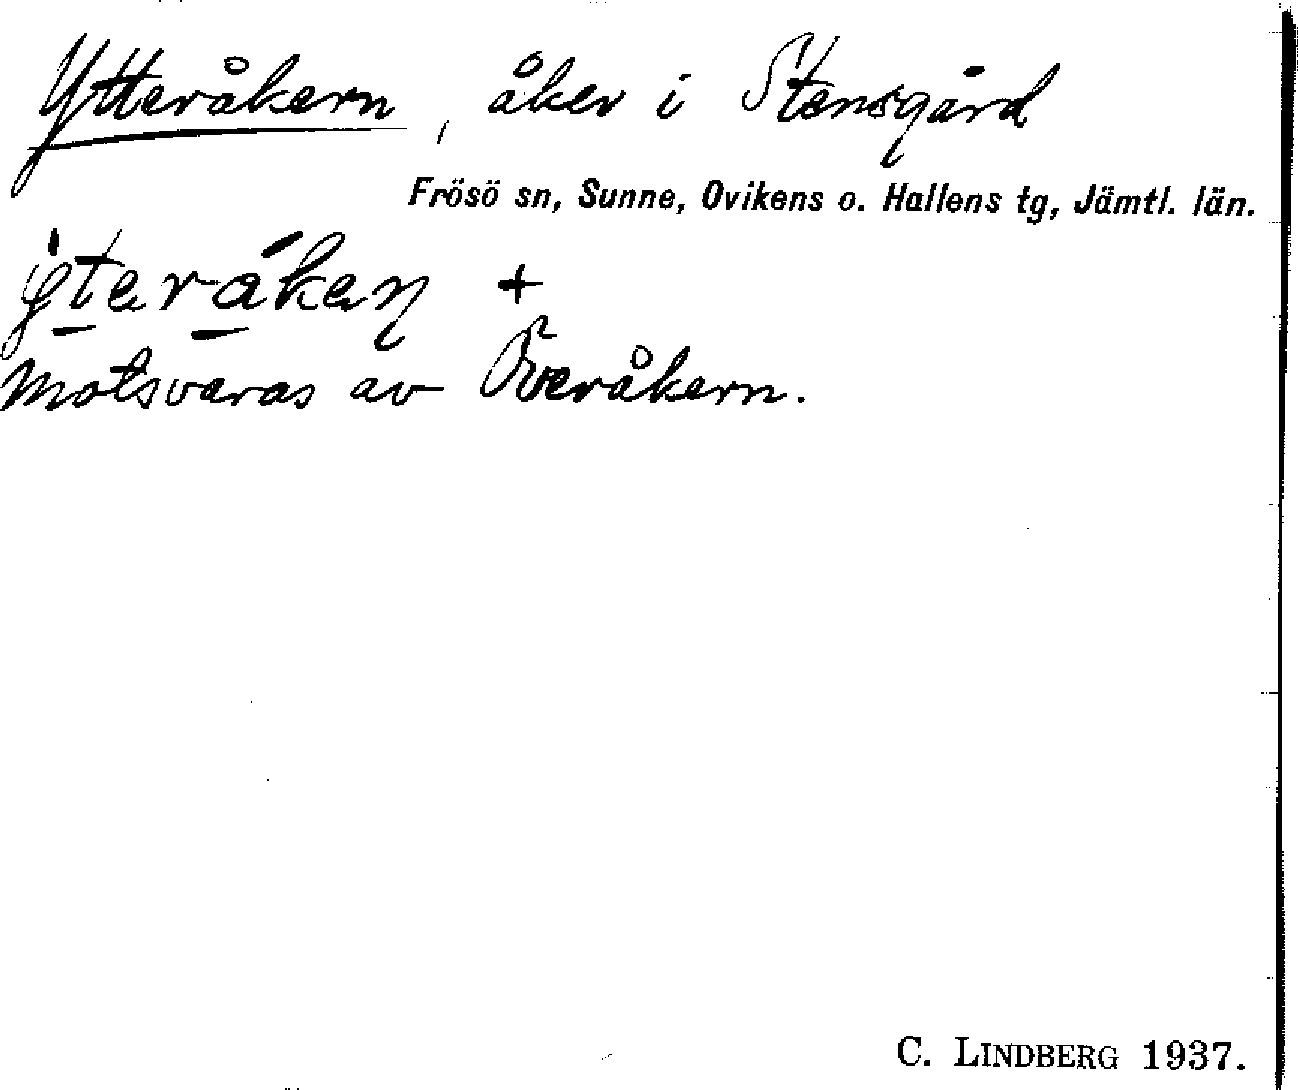 Ytteråkern, åker i Stensgård
Frösö sn, Sunne, Ovikens o. Hallens tg, Jämtl. län.
+
Motsvaras av Överåkern.
C. LINDBERG 1937.